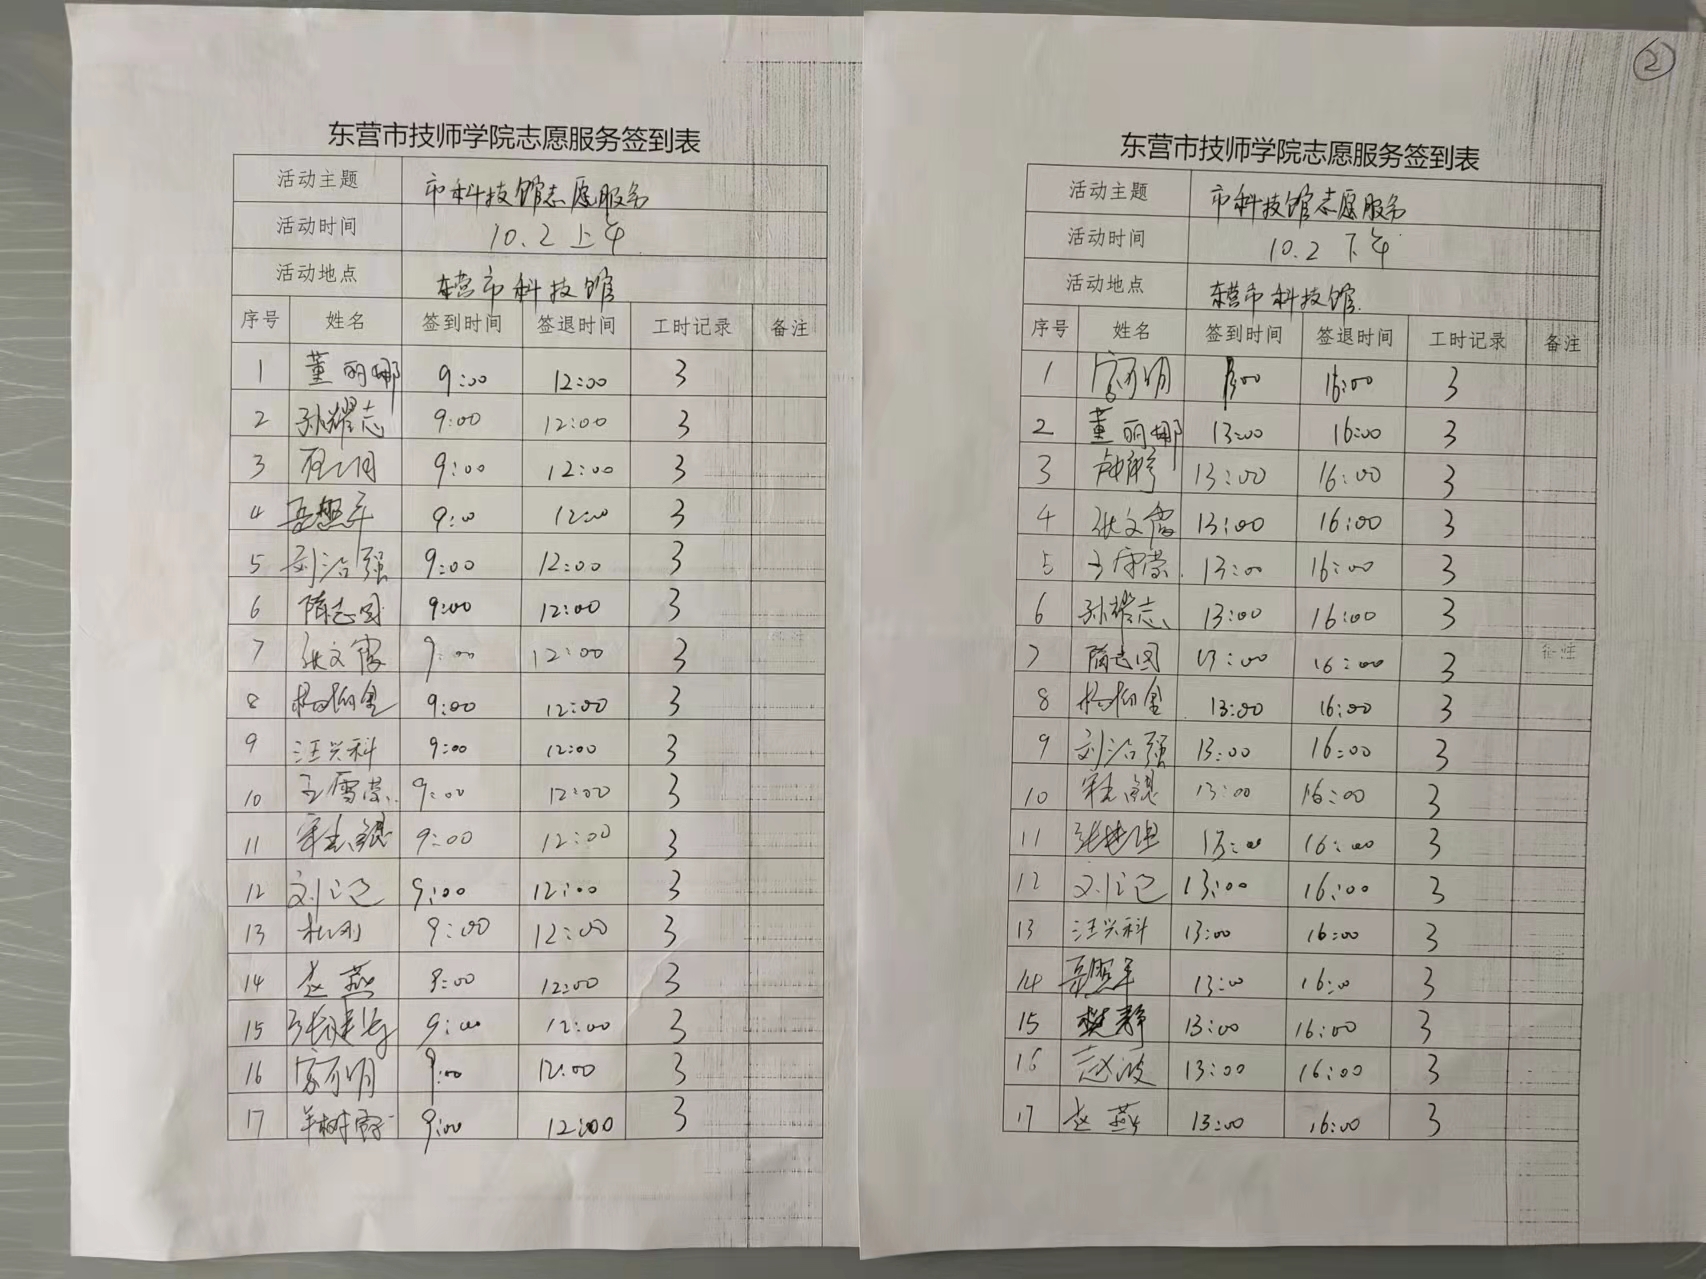 东营市技师学院志愿服务签到表
活动主题 市科技馆志愿服务
活动时间 10.2 上午
活动地点 东营市科技馆
序号 姓名 签到时间 签退时间 工时记录 备注
1 董丽娜 9:00 12:00 3
2 孙耀志 9:00 12:00 3
3 9:00 12:00 3
4 9:00 12:00 3
5 刘治强 9:00 12:00 3
6 隋志国 9:00 12:00 3
7 张文霞 9:00 12:00 3
8 9:00 12:00 3
9 汪兴科 9:00 12:00 3
10 王雪蒙 9:00 12:00 3
11 9:00 12:00 3
12 9:00 12:00 3
13 9:00 12:00 3
14 赵燕 9:00 12:00 3
15 9:00 12:00 3
16 9:00 12:00 3
17 9:00 12:00 3
②
东营市技师学院志愿服务签到表
活动主题 市科技馆志愿服务
活动时间 10.2 下午
活动地点 东营市科技馆
序号 姓名 签到时间 签退时间 工时记录 备注
1 16:00 3
2 董丽娜 13:00 16:00 3
3 13:00 16:00 3
4 张文霞 13:00 16:00 3
5 13:00 16:00 3
6 孙耀志 13:00 16:00 3
7 隋志国 13:00 16:00 3 备注
8 13:00 16:00 3
9 刘治强 13:00 16:00 3
10 13:00 16:00 3
11 13:00 16:00 3
12 13:00 16:00 3
13 汪兴科 13:00 16:00 3
14 13:00 16:00 3
15 樊静 13:00 16:00 3
16 赵波 13:00 16:00 3
17 赵燕 13:00 16:00 3